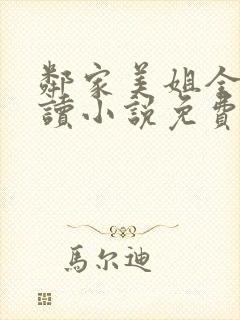 鄰家美姐全
讀小說免費
馬尔迪